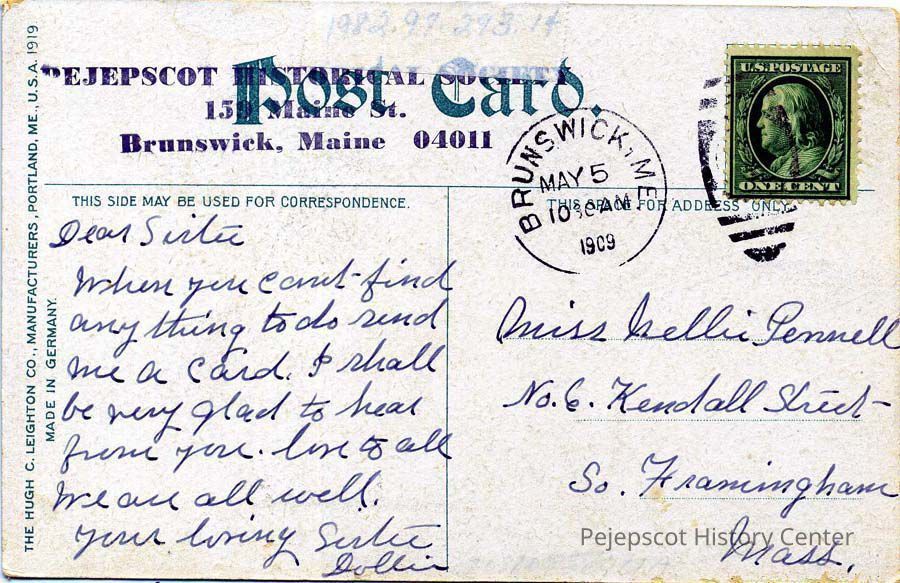 1982.97.293.14
PEJEPSCOT HISTORICAL SOCIETY
159 Maine St.
Brunswick, Maine 04011
Post Card.
U.S. POSTAGE
ONE CENT
BRUNSWICK, ME.
MAY 5
10 30 AM
1909
THIS SIDE MAY BE USED FOR CORRESPONDENCE.
THIS SPACE FOR ADDRESS ONLY.
THE HUGH C. LEIGHTON CO., MANUFACTURERS, PORTLAND, ME. U.S.A. 1919
MADE IN GERMANY.
Dear Sistie
When you cant find
any thing to do send
me a card. I shall
be very glad to hear
from you. love to all
We are all well.
Your loving Sistie
Dollie
Miss Nellie Pennell
No. 6. Kendall Street
So. Framingham
Mass.
Pejepscot History Center